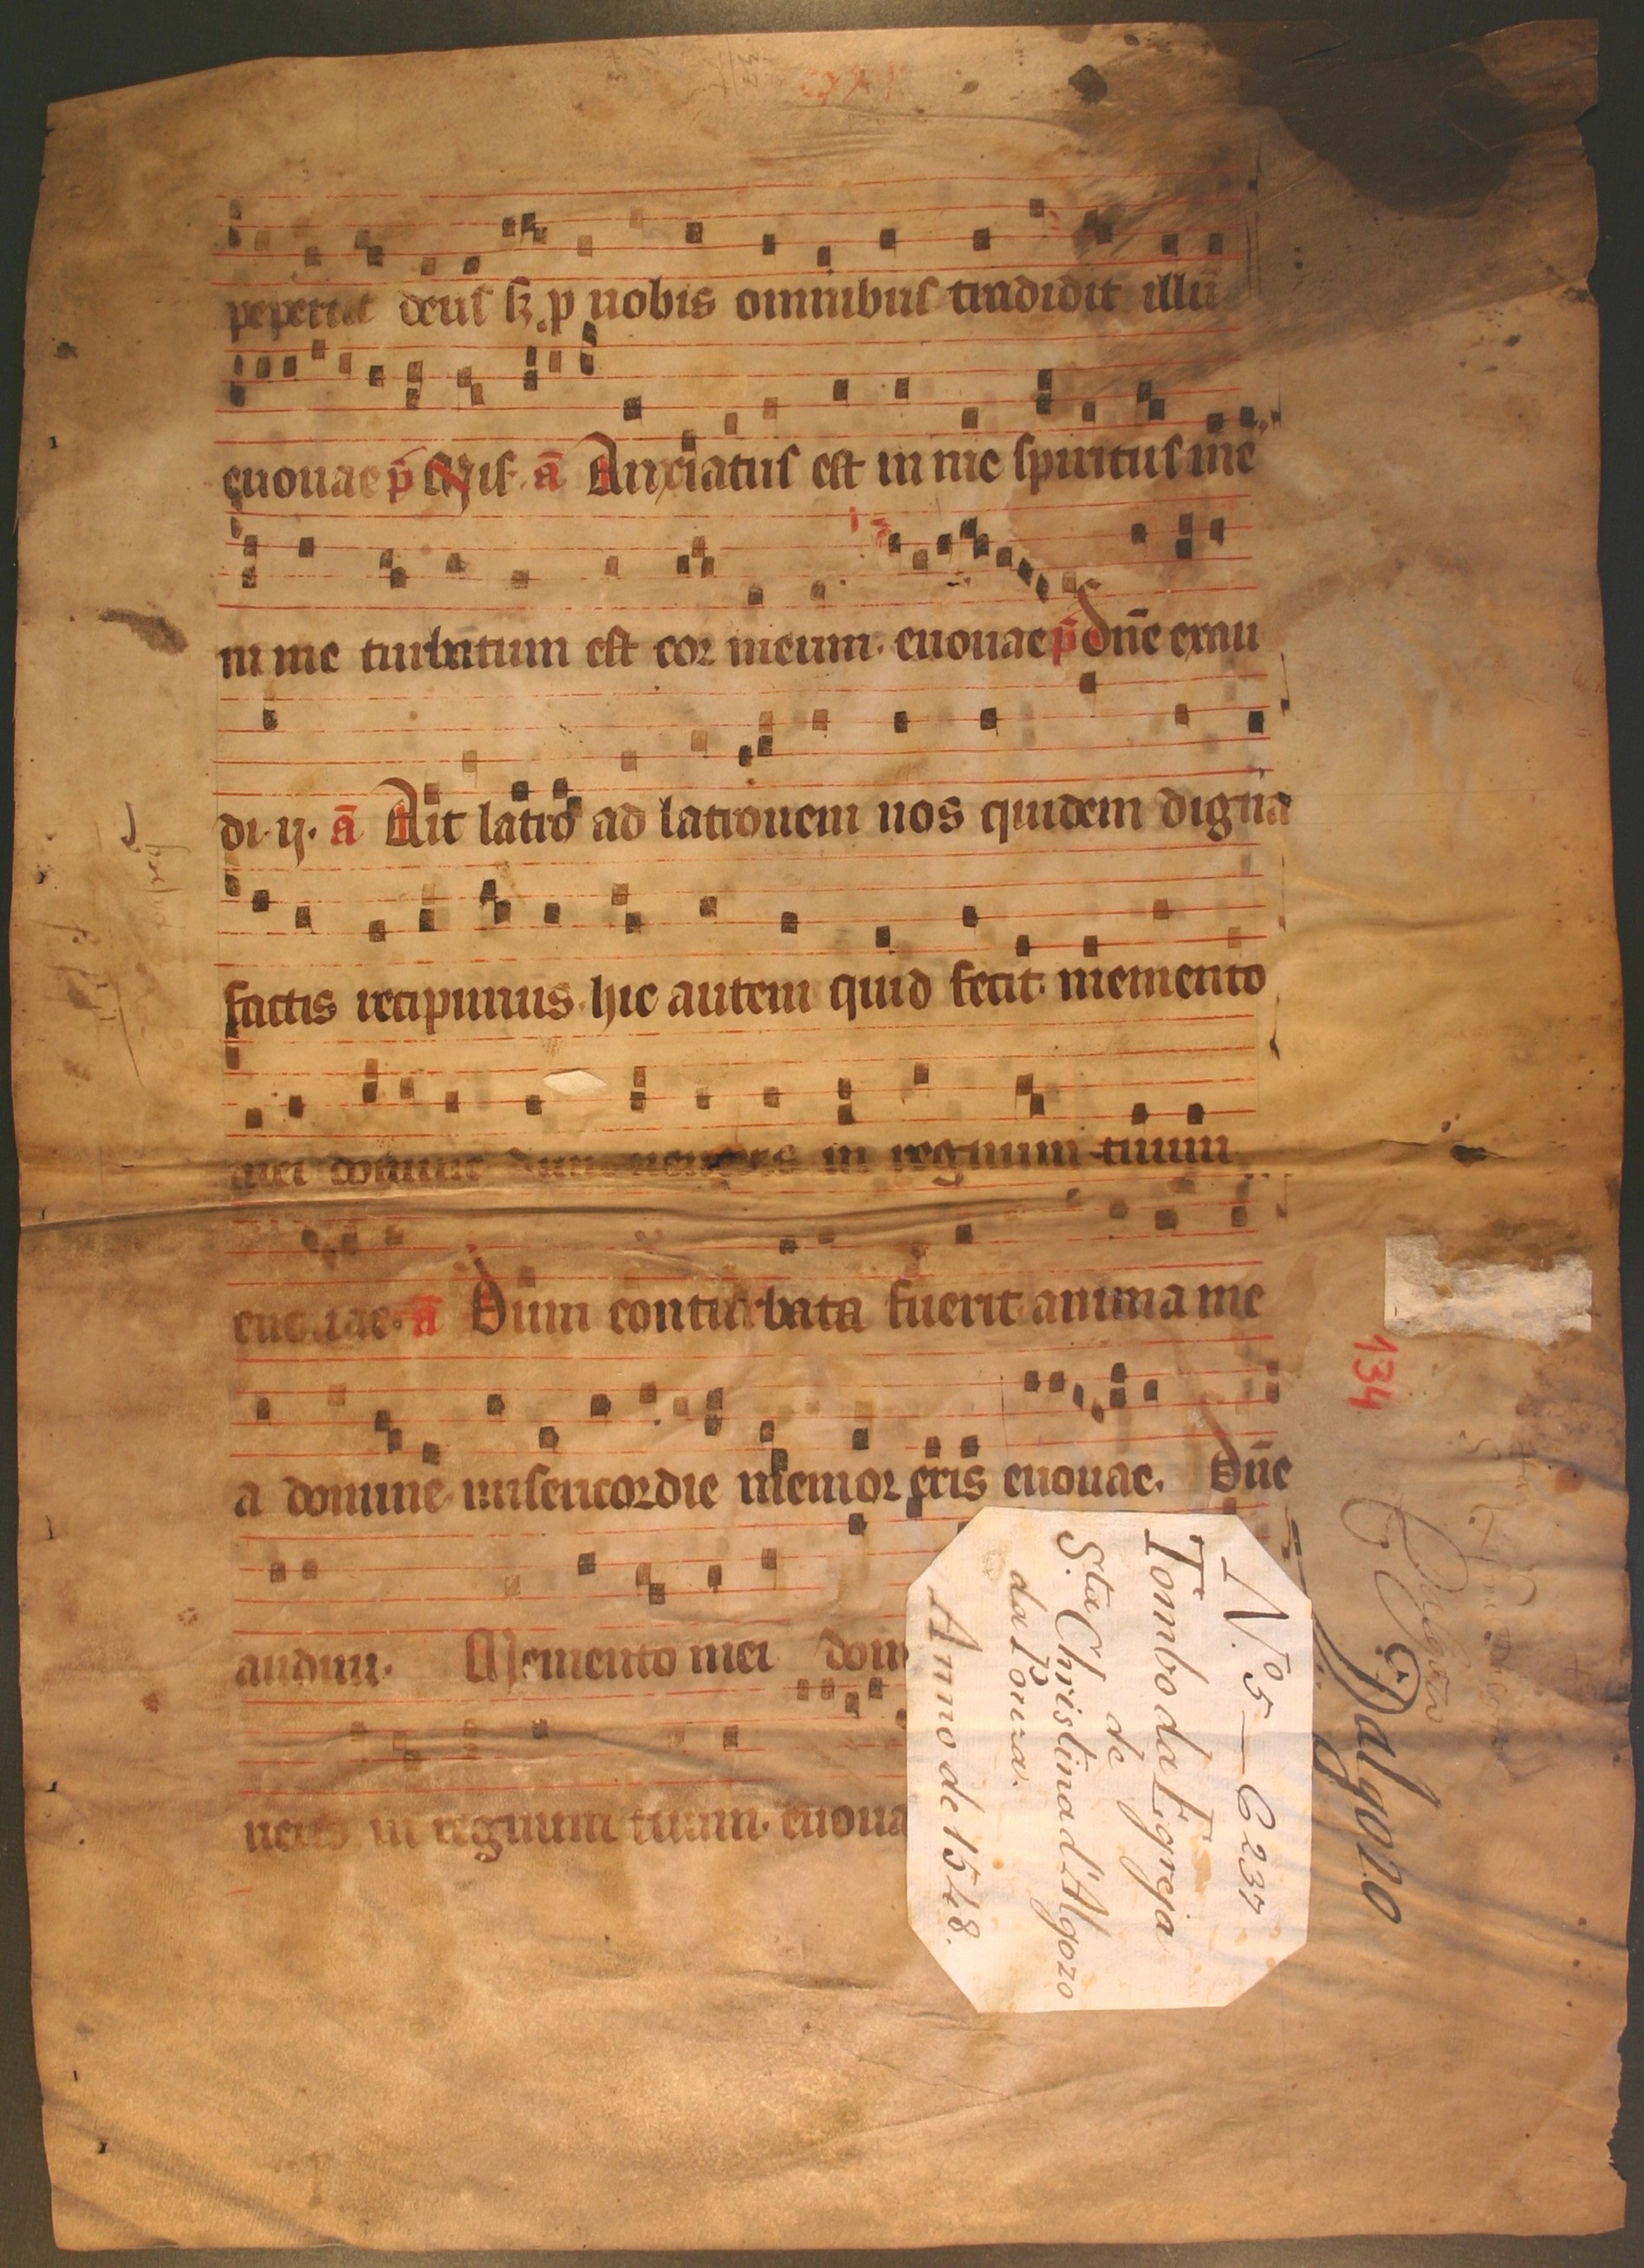 pepercit deus sꝫ p nobis omnibus tradidit illū
euouae p̄s ā Anxiatus est in me spiritus me
in me turbatum est cor meum. euouae p̄s dn̄e exau
di. ij. ā Ait latro ad latronem nos quidem digna
factis recipimus. hic autem quid fecit. memento
mei domine dum ueneris in regnum tuum
euouae. ā Dum conturbata fuerit anima me
a domine misericordie memor eris euouae. Dn̄e
audiui. Memento mei dom
ueris in regnum tuum. euoua
134
Dalgozo
N.º 5 — C 237
Tombo da Egreja
de
S.ta Christina d'Algozo
da Pouza.
Anno de 1548.